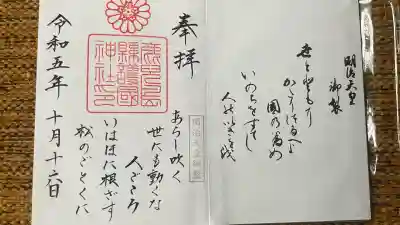 明治天皇
御製
かたりつたへよ
國の為
いのちをすてし
奉拝
鹿兒島
縣護國
神社印
明治天皇御製
あらし吹く
世にも動くな
人ごころ
いはほに根ざす
松のごとくに
令和五年 十月十六日